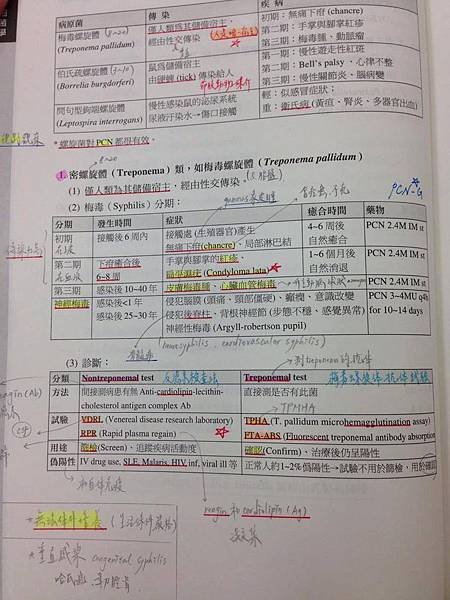 病原菌 傳 染 疾 病
梅毒螺旋體 (8~20)
(Treponema pallidum)
僅人類為其儲備宿主，
經由性交傳染
初期：無痛下疳 (chancre)
二期：手掌與腳掌紅疹
三期：梅毒腫、動脈瘤
伯氏疏螺旋體 (3~10)
(Borrelia burgdorferi)
鼠為儲備宿主
由硬蜱 (tick) 傳染給人
一期：慢性遊走性紅斑
二期：Bell's palsy、心律不整
三期：慢性關節炎、腦病變
問句型鉤端螺旋體
(Leptospira interrogans)
慢性感染鼠的泌尿系統
尿液汙染水→傷口接觸
輕：似感冒症狀；
重：衛氏病 (黃疸、腎炎、多器官出血)
*螺旋菌對PCN都很有效。
8~20
1.密螺旋體 (Treponema) 類，如梅毒螺旋體 (Treponema pallidum)
(1) 僅人類為其儲備宿主，經由性交傳染。
(2) 梅毒 (Syphilis) 分期：
PCN-G
分期 發生時間 症狀 癒合時間 藥物
初期 接觸後 6 周內 接觸處 (生殖器官)產生
無痛下疳(chancre)、局部淋巴結
4~6 周後
自然癒合
PCN 2.4M IM st
第二期 下疳癒合後
6~8周
手掌與腳掌的紅疹、
扁平濕疣 (Condyloma lata)
1~6 個月後
自然消退
PCN 2.4M IM st
第三期 感染後 10~40 年 皮膚梅毒腫、心臟血管梅毒 PCN 2.4M IM st
神經梅毒 感染後<1 年
感染後 25~30 年
侵犯腦膜 (頭痛、頸部僵硬)、癲癇、意識改變
侵犯後脊柱、背根神經節 (步態不穩、感覺異常)
神經性梅毒 (Argyll-robertson pupil)
PCN 3~4MU q4h
for 10~14 days
(neurosyphilis, cardiovascular syphilis)
(3) 診斷：
分類 Nontreponemal test Treponemal test
方法 間接測病患有無 Anti-cardiolipin-lecithin-
cholesterol antigen complex Ab
直接測是否有此菌
TPMHA
試驗 VDRL (Venereal disease research laboratory)
RPR (Rapid plasma regain)
TPHA (T. pallidum microhemagglutination assay)
FTA-ABS (Fluorescent treponemal antibody absorption
用途 篩檢(Screen)、追蹤疾病活動度 確認(Confirm)、治療後仍呈陽性
偽陽性 IV drug use, SLE, Malaria, HIV inf, viral ill 等 正常人約 1~2%偽陽性→試驗不用於篩檢，用於確認
regin 和 cardiolipin (Ag)
*垂直感染 congenital syphilis